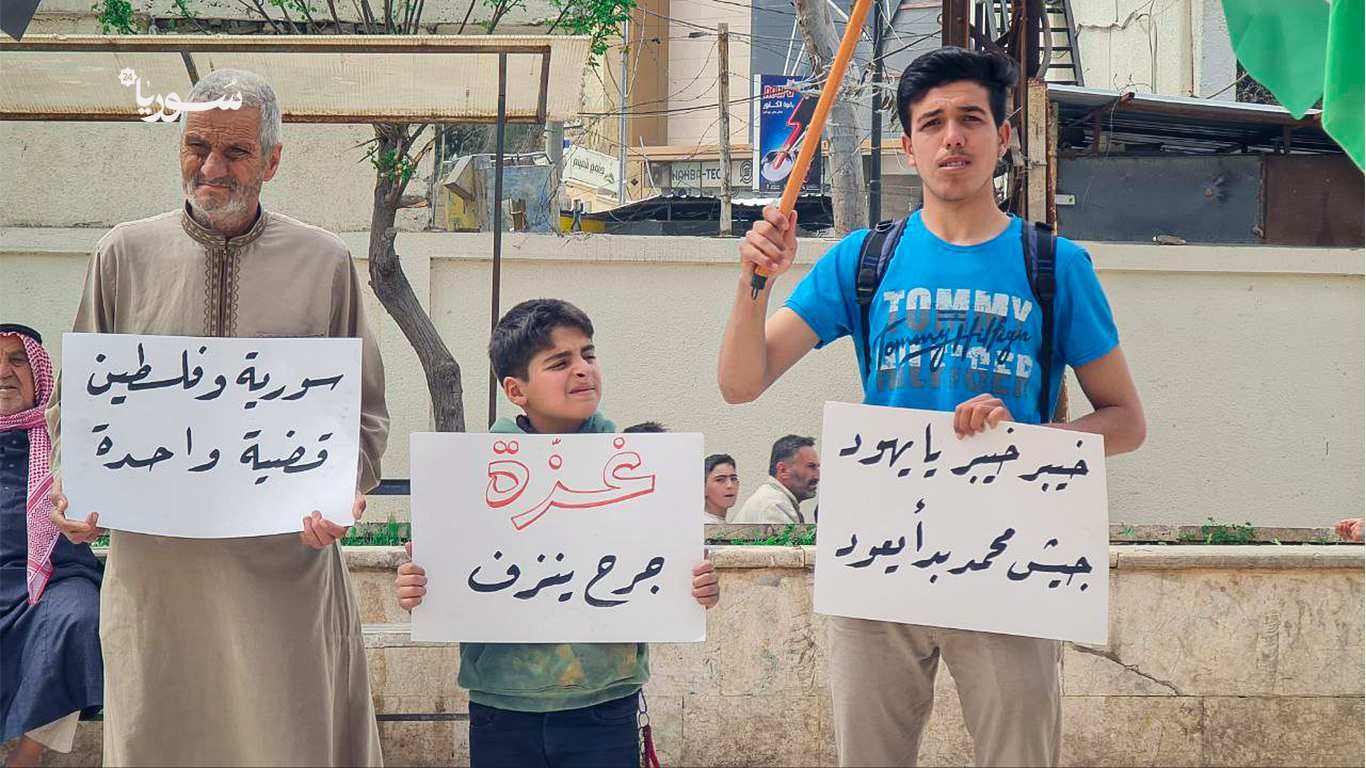 سوريا 24
سورية وفلسطين
قضية واحدة
غزّة
جرح ينزف
خيبر خيبر يا يهود
جيش محمد بدأ يعود
TOMMY
Tommy Hilfiger
HILFIGER
NAHBA-TEC